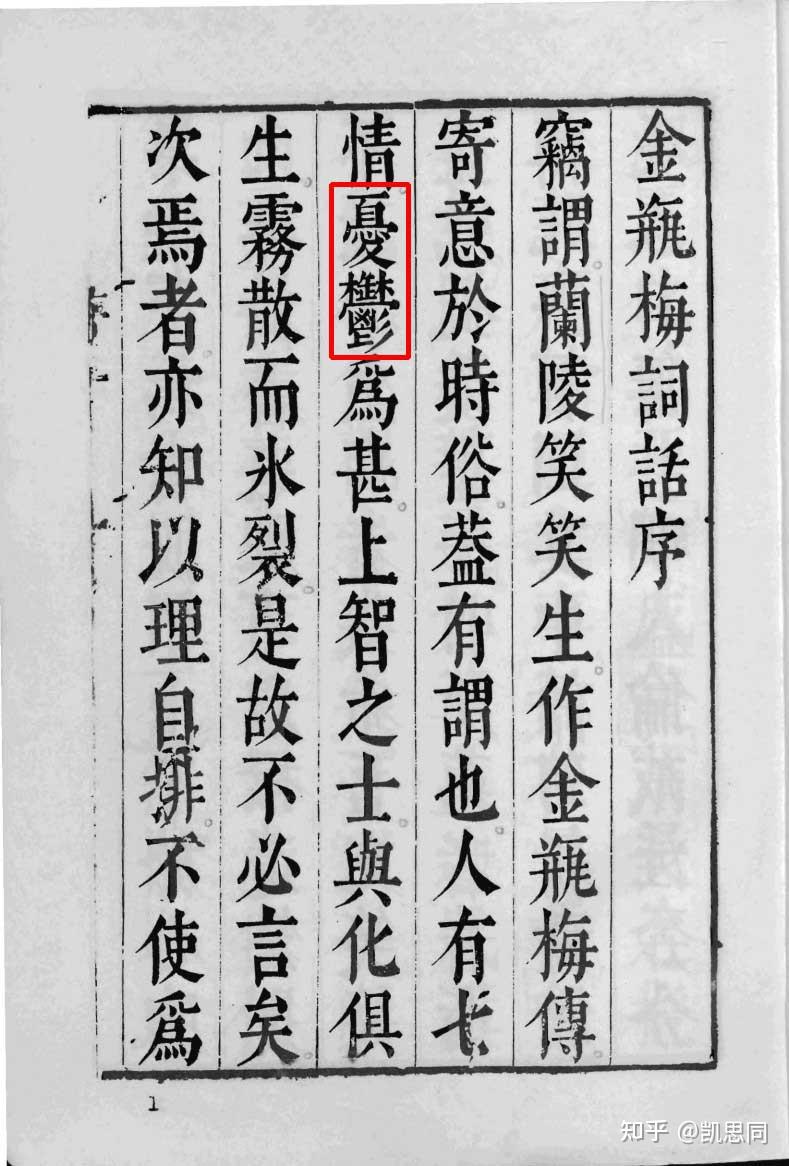 金瓶梅詞話序
竊謂蘭陵笑笑生作金瓶梅傳
寄意於時俗蓋有謂也人有七
情憂鬱爲甚上智之士與化俱
生霧散而氷裂是故不必言矣
次焉者亦知以理自排不使爲
1
知乎 @凯思同